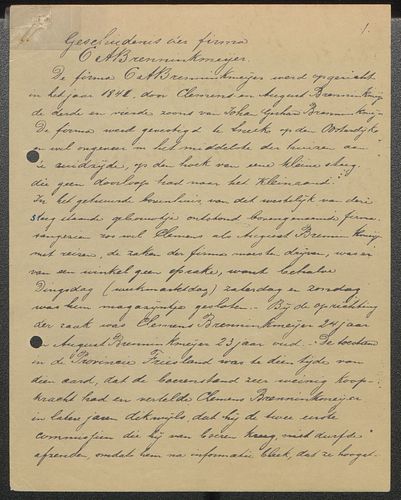 1.
Geschiedenis der firma
C & A Brenninkmeijer.
De firma C & A Brenninkmeijer werd opgericht
in het jaar 1841, door Clemens en August Brenninkmeijer
de derde en vierde zoons van Johan Gerhard Brenninkmeijer
De firma werd gevestigd te Sneek op den Oosterdijk
en wel ongeveer in het middelste der huizen aan
de zuidzijde, op den hoek van eene kleine steeg
die geen doorloop had naar het Kleinzand.
In het gehuurde bovenhuis van dit westelijk van deze
steeg staande gebouwtje ontstond bovengenoemde firma.
aangezien zoowel Clemens als August Brenninkmeijer
met reizen, de zaken der firma moesten drijven, was er
van een winkel geen sprake, want behalve
Dingsdag (weekmarktdag) zaterdag en zondag
was hun magazijntje gesloten. Bij de oprichting
der zaak was Clemens Brenninkmeijer 24 jaar
en August Brenninkmeijer 23 jaar oud. De toestand
in de Provincie Friesland was te dien tijde van
dien aard, dat de boerenstand zeer weinig koop-
kracht had en vertelde Clemens Brenninkmeijer
in latere jaren dikwijls, dat hij de twee eerste
commissiën die hij van boeren kreeg, niet durfde
afzenden, omdat hem na informatie bleek, dat ze hoogst